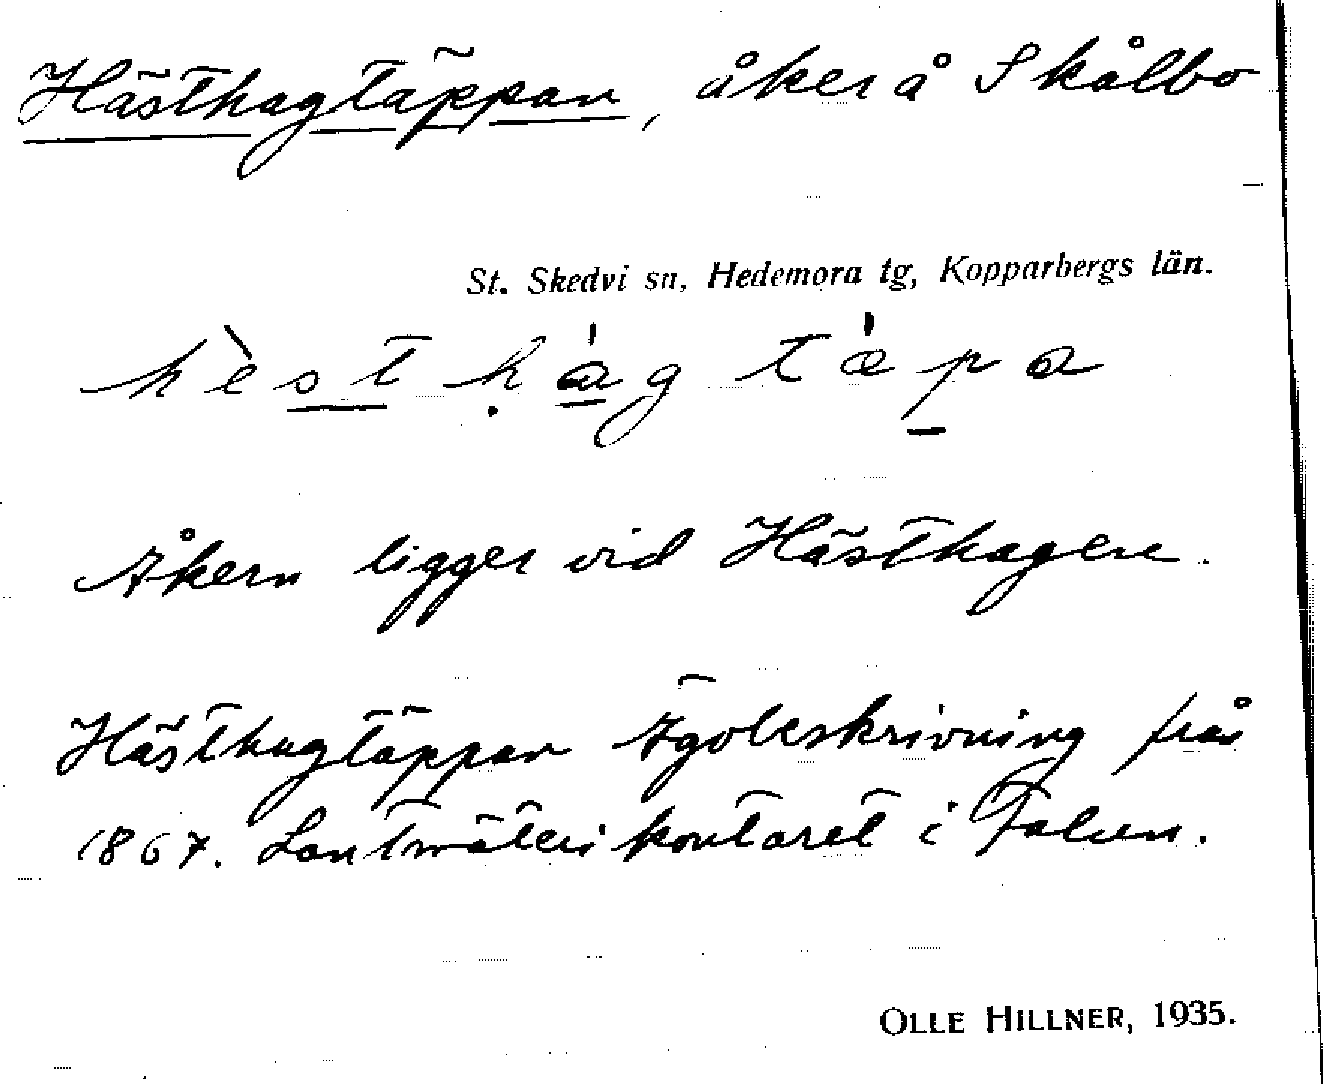 Hästhagtäppan, åker å Skålbo
St. Skedvi sn, Hedemora tg, Kopparbergs län.
hèst hág tǽpa
Åkern ligger vid Hästhagen.
Hästhagtäppan Ägobeskrivning från
1867. Lantmäterikontoret i Falun.
OLLE HILLNER, 1935.